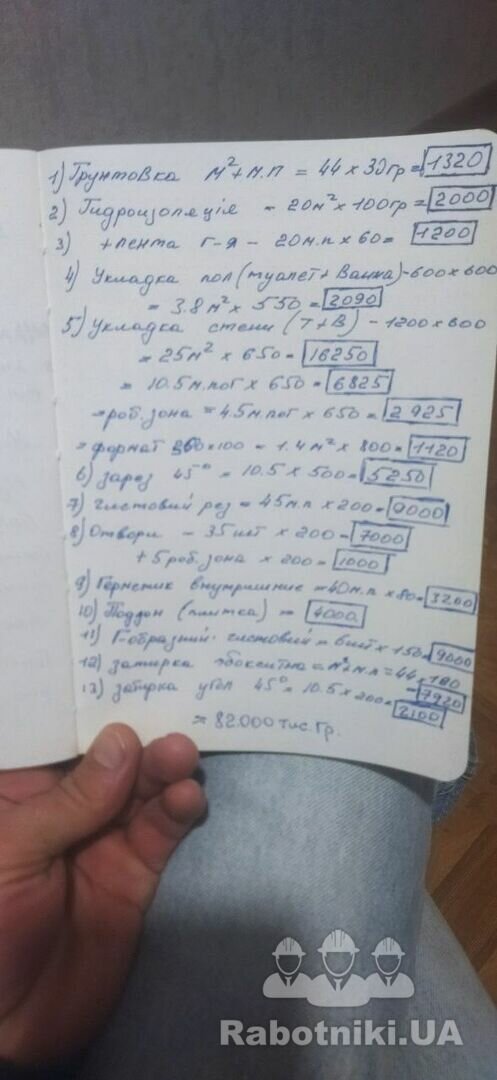 1) Грунтовка м²+м.п = 44 x 30гр = 1320
2) Гидроизоляція - 20м² x 100гр = 2000
3) +лента г-я - 20м.п x 60 = 1200
4) Укладка пол (туалет + Ванна) - 600 x 600
= 3.8м² x 550 = 2090
5) Укладка стени (Т+В) - 1200 x 600
= 25м² x 650 = 16250
= 10.5 м.пог x 650 = 6825
=роб.зона = 4.5м.пог x 650 = 2925
=формат 300x100 = 1.4м² x 800 = 1120
6) зарез 45° = 10.5 x 500 = 5250
7) чистовий рез = 45м.п x 200 = 9000
8) Отвори - 35шт x 200 = 7000
+ 5 роб.зона x 200 = 1000
9) Герметик внутришние = 40м.п x 80 = 3200
10) Поддон (плитка) = 4000
11) Г-образний чистовий = 6шт x 150 = 9000
12) затирка = м²+м.п = 44 x 180
= 7920
13) затирка угол 45° = 10.5 x 200 = 2100
= 82.000 тис.Гр.
Rabotniki.UA